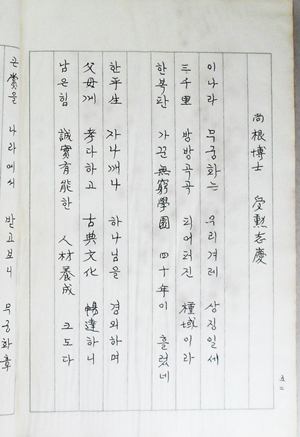 尚根博士 受勳志慶
이나라 무궁화는 우리겨레 상징일세
三千里 방방곡곡 피어터진 槿域이라
한복판 가꾼 無窮學園 四十年이 흘렀네
한平生 자나깨나 하나님을 경외하며
父母께 孝다하고 古典文化 暢達하니
남은힘 誠實有能한 人材養成 크도다
큰 賞을 나라에서 받고보니 무궁화章